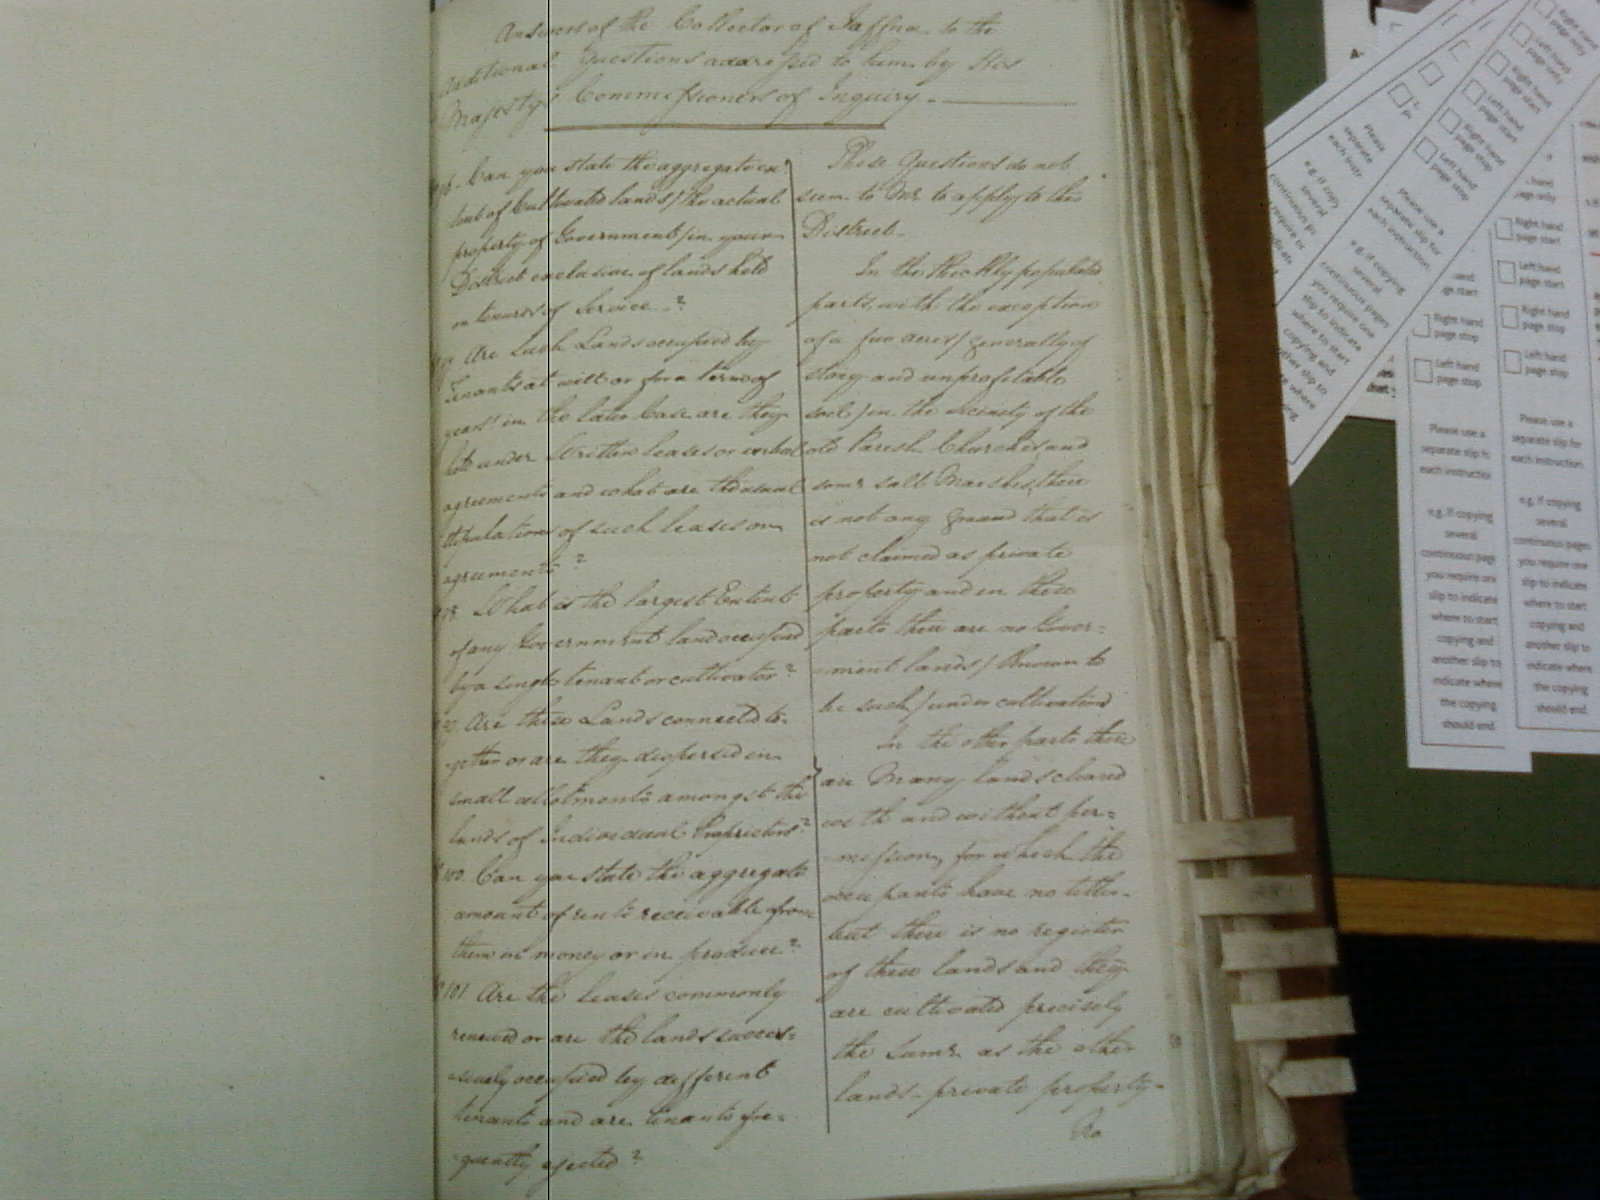 Answers of the Collector of Jaffna to the
Additional Questions addressed to him by His
Majesty's Commissioners of Inquiry.
96. Can you state the aggregate ex¬
tent of Cultivated lands (the actual
property of Government) in your
District exclusive of lands held
on tenures of Service?
97. Are such Lands occupied by
Tenants at will or for a term of
years? in the later Case are they
held under Written leases or verbal
agreements and what are the usual
stipulations of such leases or
agreements?
98. What is the largest Extent
of any Government land occupied
by a single tenant or cultivator?
99. Are these Lands connected to¬
gether or are they dispersed in
small allotments amongst the
lands of Individual Proprietors?
100. Can you state the aggregate
amount of rents receivable from
them in money or in produce?
101. Are the leases commonly
renewed or are the lands succes=
sively occupied by different
tenants and are tenants fre=
quently ejected?
These Questions do not
seem to me to apply to this
District.
In the thickly populated
parts, with the exception
of a few acres (generally of
stony and unprofitable
soil) in the vicinity of the
old Parish Churches and
some salt Marshes, there
is not any ground that is
not claimed as private
property and in these
parts there are no Gover=
nment lands (known to
be such) under cultivation
In the other parts there
are Many lands cleared
with and without per=
mission, for which the
occupants have no titles
but there is no register
of these lands and they
are cultivated precisely
the same as the other
lands - private property -
Right hand
page only
Left hand
page only
Right hand
page start
Left hand
page start
Right hand
page stop
Left hand
page stop
Please use a
separate slip for
each instruction.
e.g. if copying
several
continuous pages
you require one
slip to indicate
where to start
copying and
another slip to
Right hand
page start
Left hand
page start
Right hand
page stop
Left hand
page stop
Please use a
separate slip for
each instruction.
e.g. if copying
several
continuous pages
you require one
slip to indicate
where to start
copying and
another slip to
indicate where
the copying
should end.
Right hand
page stop
Left hand
page stop
Please use a
separate slip fo
each instruction
e.g. if copying
several
continuous page
you require one
slip to indicate
where to start
copying and
another slip to
indicate where
the copying
should end.